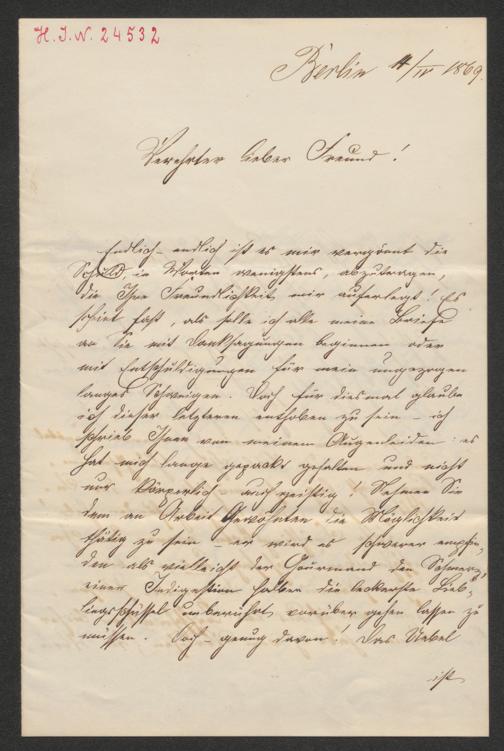 H.I.N. 24532
Berlin 4/IV 1869.
Verehrter lieber Freund!
Endlich – endlich ist es mir vergönnt die
Schuld in Worten wenigstens, abzutragen,
die Ihre Freundlichkeit mir auferlegt! Es
scheint fast, als solle ich alle meine Briefe
an Sie mit Danksagungen beginnen oder
mit Entschuldigungen für mein ungezogen
langes Schweigen. Doch für diesmal glaube
ich dieser letzteren enthoben zu sein – ich
schrieb Ihnen von meinem Augenleiden: es
hat mich lange gepackt gehalten und nicht
nur körperlich auch geistig! Nehmen Sie
dem an Arbeit Gewohnten die Möglichkeit
thätig zu sein – er wird es schwerer empfin-
den als vielleicht der Gourmand den Schmerz,
einer Indigestion halber die leckerste Lieb-
lingsschüssel unberührt vorüber gehen lassen zu
müssen. Doch – genug davon! Das Uebel
ist